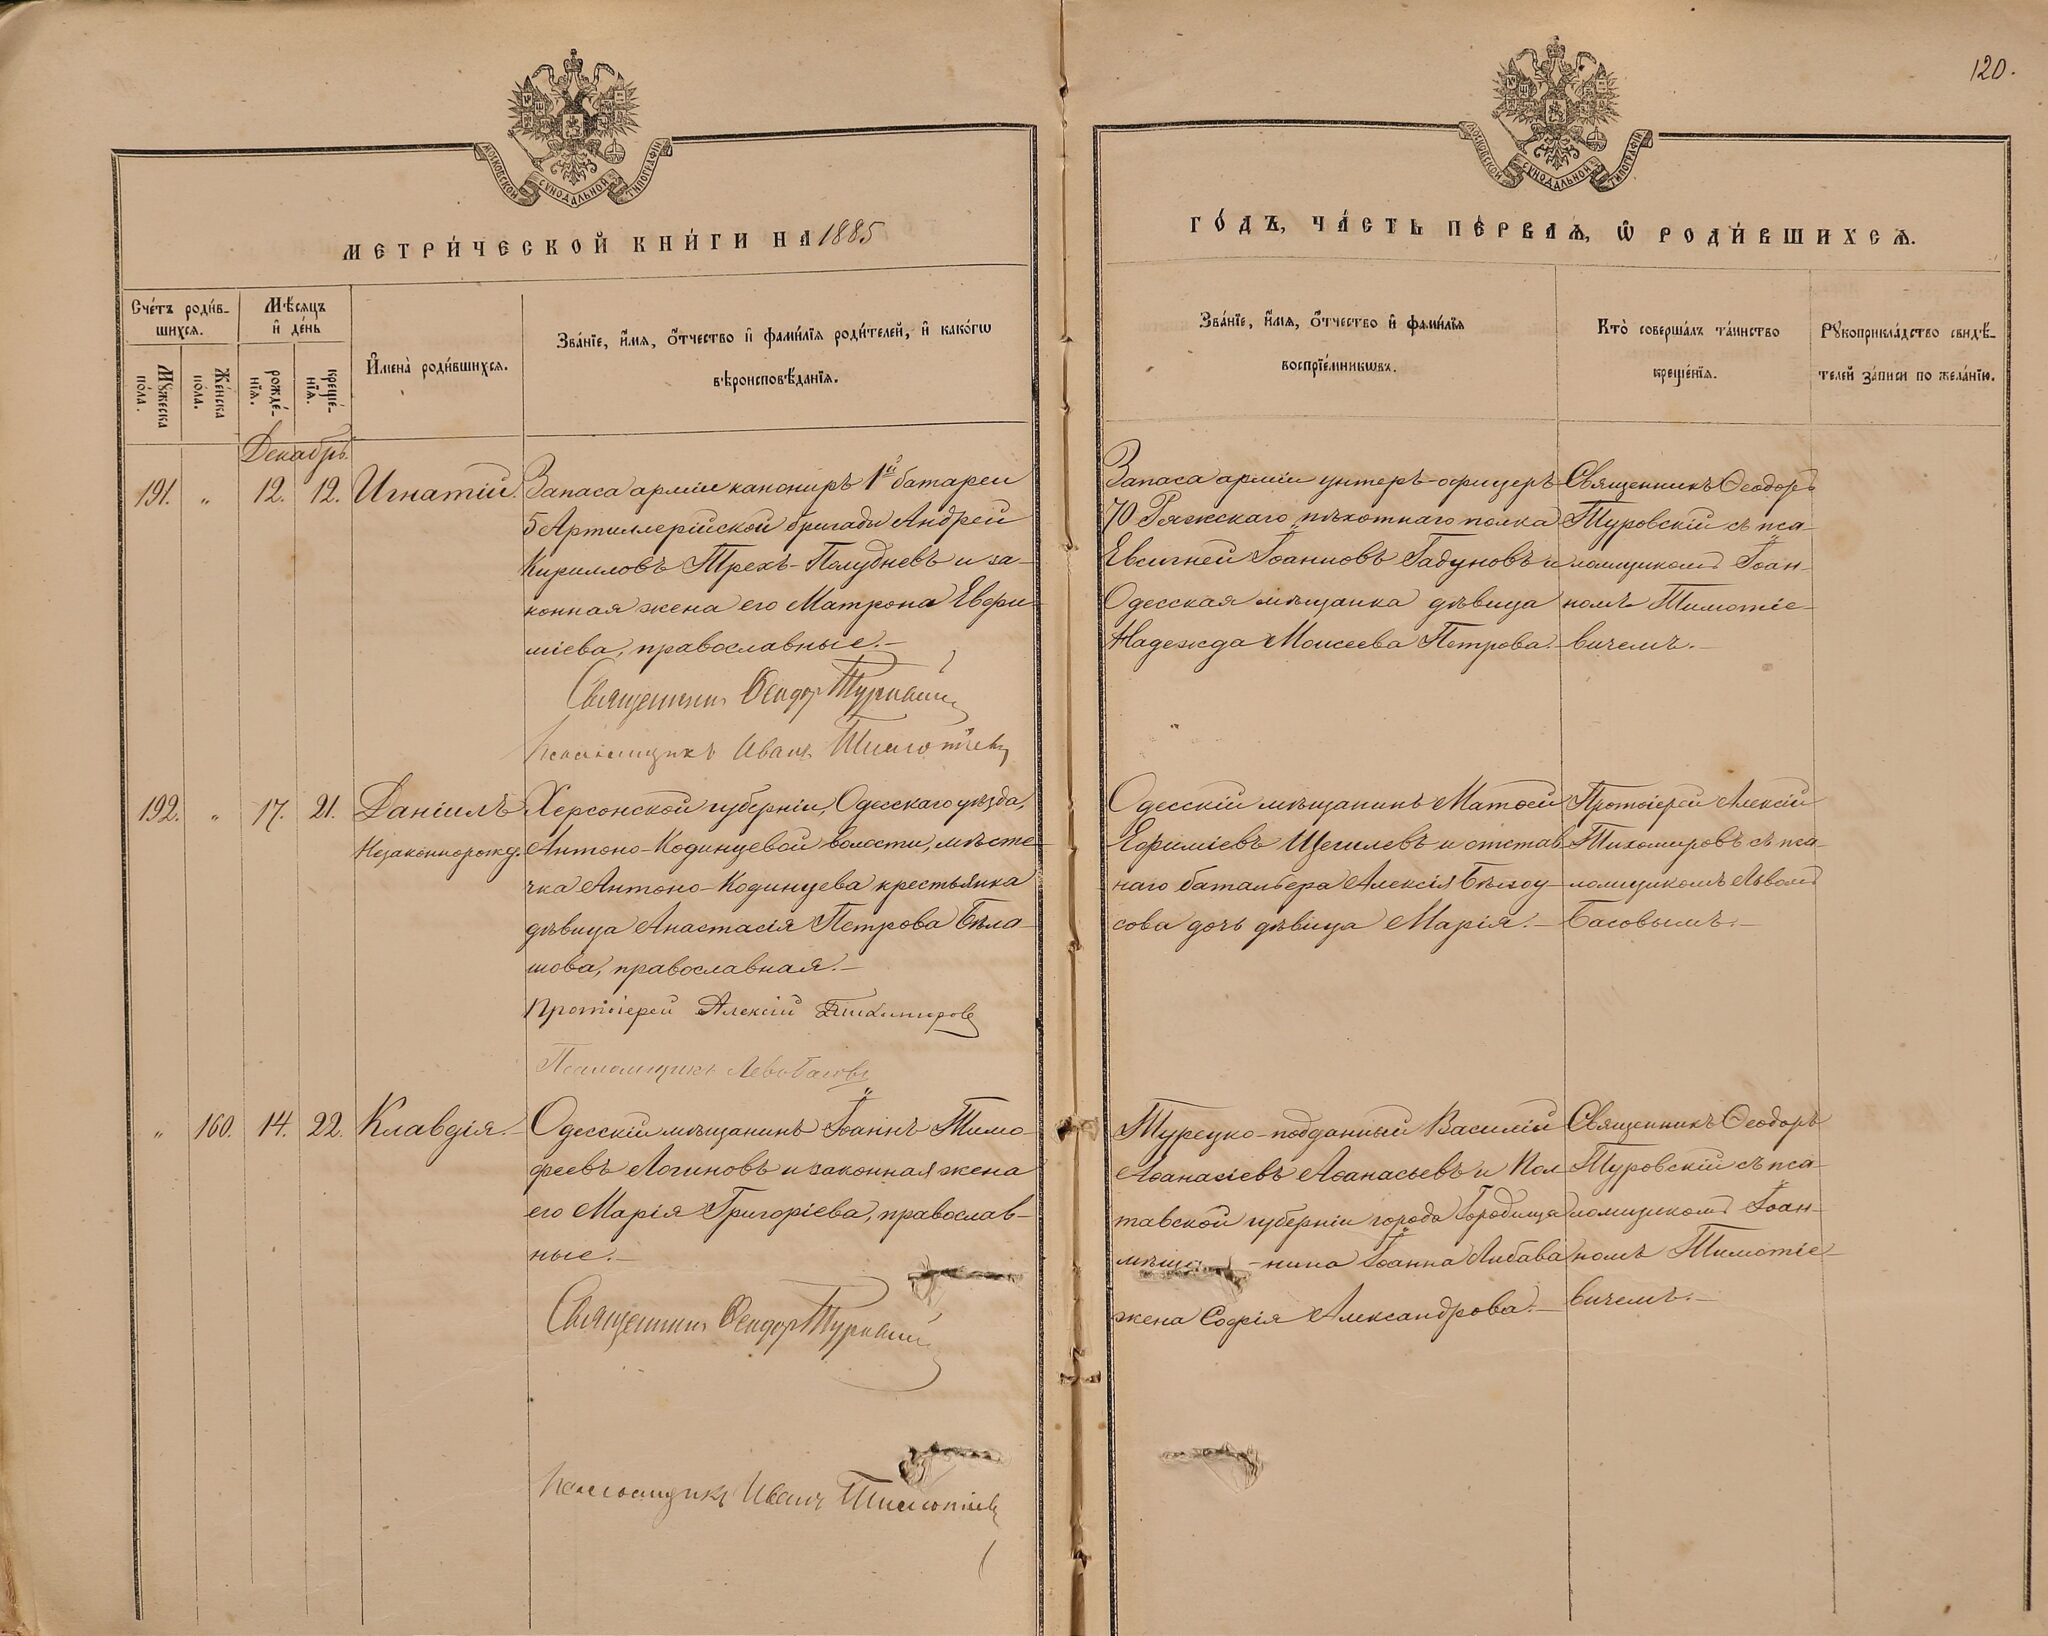 120.
МОСКОВСКОЙ СѴНОДАЛЬНОЙ ТИПОГРАФІИ
МОСКОВСКОЙ СѴНОДАЛЬНОЙ ТИПОГРАФІИ
МЕТРИ́ЧЕСКОЙ КНИ́ГИ НА 1885
ГО́ДЪ, ЧА́СТЬ ПЕ́РВАѦ, Ѿ РОДИ́ВШИХСѦ.
Сче́тъ роди́в-
шихся.
Мꙋжеска по́ла.
Же́нска по́ла.
Мѣ́сяцъ и҆ де́нь
рожде́-
нїѧ.
креще́-
нїѧ.
И҆мена̀ роди́вшихся.
Зва́нїе, и҆́мя, ѻ҆́тчество и҆ фами́лїя роди́телей, и҆ како́гѡ
вѣроисповѣ́данїѧ.
Зва́нїе, и҆́мя, ѻ҆́тчество и҆ фами́лїя
воспрїе́мникѡвъ.
Кто̀ соверша́лъ та́инство
креще́нїѧ.
Рꙋкоприкла́дство свидѣ́-
телей за́писи по жела́нїю.
Декабрь.
191. „ 12. 12. Игнатій.
Запаса арміи канониръ 1й батареи
5 Артиллерійской бригады Андрей
Кирилловъ Трехъ-Полудневъ и за-
конная жена его Матрона Евфи-
міева, православные.—
Священникъ Ѳеодоръ Туровскій
Псаломщикъ Иванъ Тимоѳіевъ
Запаса арміи унтеръ-офицеръ
70 Ряжскаго пѣхотнаго полка
Евсигней Іоанновъ Гадуновъ и
Одесская мѣщанка дѣвица
Надежда Моисеева Петрова.—
Священникъ Ѳеодоръ
Туровскій съ пса-
ломщикомъ Іоан-
номъ Тимоѳіе-
вичемъ.—
192. „ 17. 21. Даніилъ
Незаконнорожд.
Херсонской губерніи, Одесскаго уѣзда,
Антоно-Кодинцевой волости, мѣсте-
чка Антоно-Кодинцева крестьянка
дѣвица Анастасія Петрова Бѣла-
шова, православная.—
Протоіерей Алексій Тихомировъ
Псаломщикъ Левъ Басовъ
Одесскій мѣщанинъ Матѳей
Ефиміевъ Щеглевъ и отстав
наго баталера Алексія
дочь дѣвица Марія.—
Протоіерей Алексій
Тихомировъ съ пса-
ломщикомъ Львомъ
Басовымъ.—
„ 160. 14. 22. Клавдія.—
Одесскій мѣщанинъ Іоаннъ Тимо-
феевъ Логиновъ и законная жена
его Марія Григоріева, православ-
ные.—
Священникъ Ѳеодоръ Туровскій
Псаломщикъ Иванъ Тимоѳіевъ
Турецко-подданный Василій
Аѳанасіевъ Аѳанасьевъ и Пол
тавской губерніи города Городища
мѣща-нина Іоанна Либава
жена Софія Александрова.—
Священникъ Ѳеодоръ
Туровскій съ пса-
ломщикомъ Іоан-
номъ Тимоѳіе-
вичемъ.—